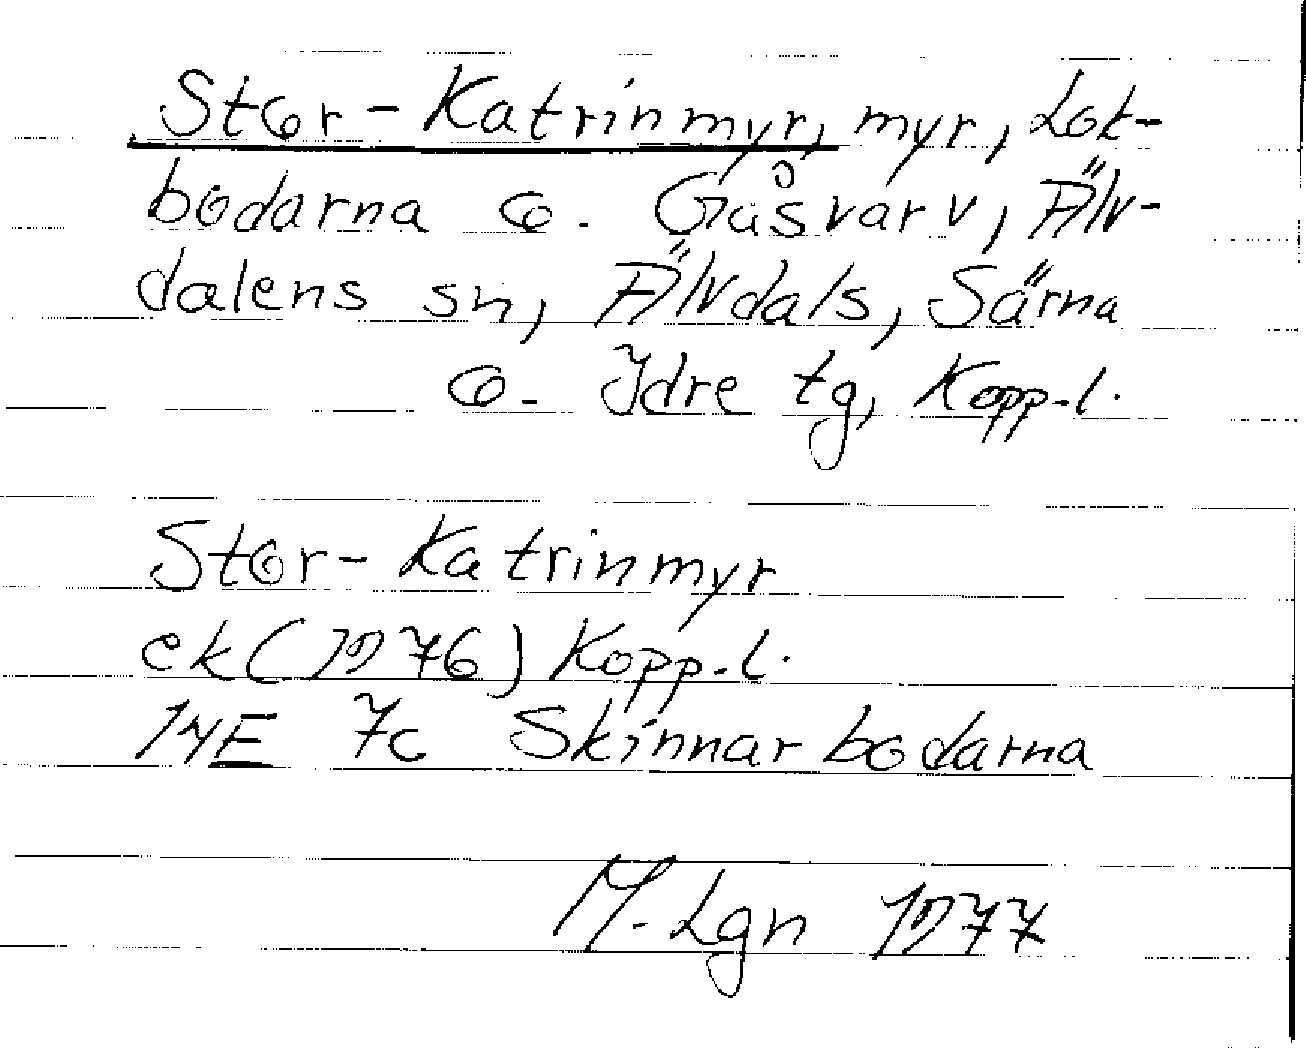 Stor-Katrinmyr, myr, Lot-
bodarna o. Gåsvarv, Älv-
dalens sn, Älvdals, Särna
o. Idre tg, Kopp.l.
Stor-Katrinmyr
ek (1976) Kopp.l.
14E 7c Skinnarbodarna
M. Lgn 1977